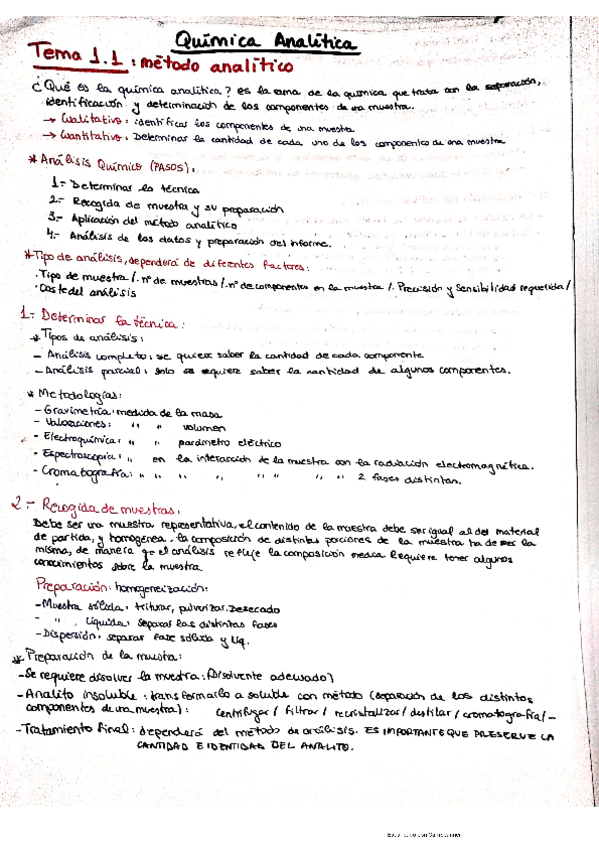 Química Analítica
Tema 1.1: método analítico
¿Qué es la química analítica? es la rama de la química que trata con la separación,
identificación y determinación de los componentes de una muestra.
→ Cualitativo: identificar los componentes de una muestra
→ Cuantitativo: Determinar la cantidad de cada uno de los componentes de una muestra
* Análisis Químico (PASOS):
1.- Determinar la técnica
2.- Recogida de muestra y su preparación
3.- Aplicación del método analítico
4.- Análisis de los datos y preparación del informe.
* Tipo de análisis, dependerá de diferentes factores:
· Tipo de muestra /· nº de muestras /· nº de componentes en la muestra /· Precisión y Sensibilidad requerida /
· Coste del análisis
1.- Determinar la técnica:
* Tipos de análisis:
- Análisis completo: se quiere saber la cantidad de cada componente
- Análisis parcial: solo se requiere saber la cantidad de algunos componentes.
* Metodologías:
- Gravimetría: medida de la masa
- Valoraciones: " " volumen
- Electroquímica: " " parámetro eléctrico
- Espectroscopia: " en la interacción de la muestra con la radiación electromagnética.
- Cromatografía: " " " " " " " 2 fases distintas.
2.- Recogida de muestras:
Debe ser una muestra representativa, el contenido de la muestra debe ser igual al del material
de partida, y homogénea. la composición de distintas porciones de la muestra ha de ser la
misma, de manera que el análisis refleje la composición media. Requiere tener algunos
conocimientos sobre la muestra.
Preparación: homogeneización:
- Muestra sólida: triturar, pulverizar. Desecado
- " , Líquida: separar las distintas fases
- Dispersión: separar fase sólida y líq.
* Preparación de la muestra:
- Se requiere disolver la muestra: (Disolvente adecuado)
- Analito insoluble: transformarlo a soluble con método (separación de los distintos
componentes de una muestra): centrifugar / filtrar / recristalizar / destilar / cromatografía / -
- Tratamiento final: dependerá del método de análisis. ES IMPORTANTE QUE PRESERVE LA
CANTIDAD E IDENTIDAD DEL ANALITO.